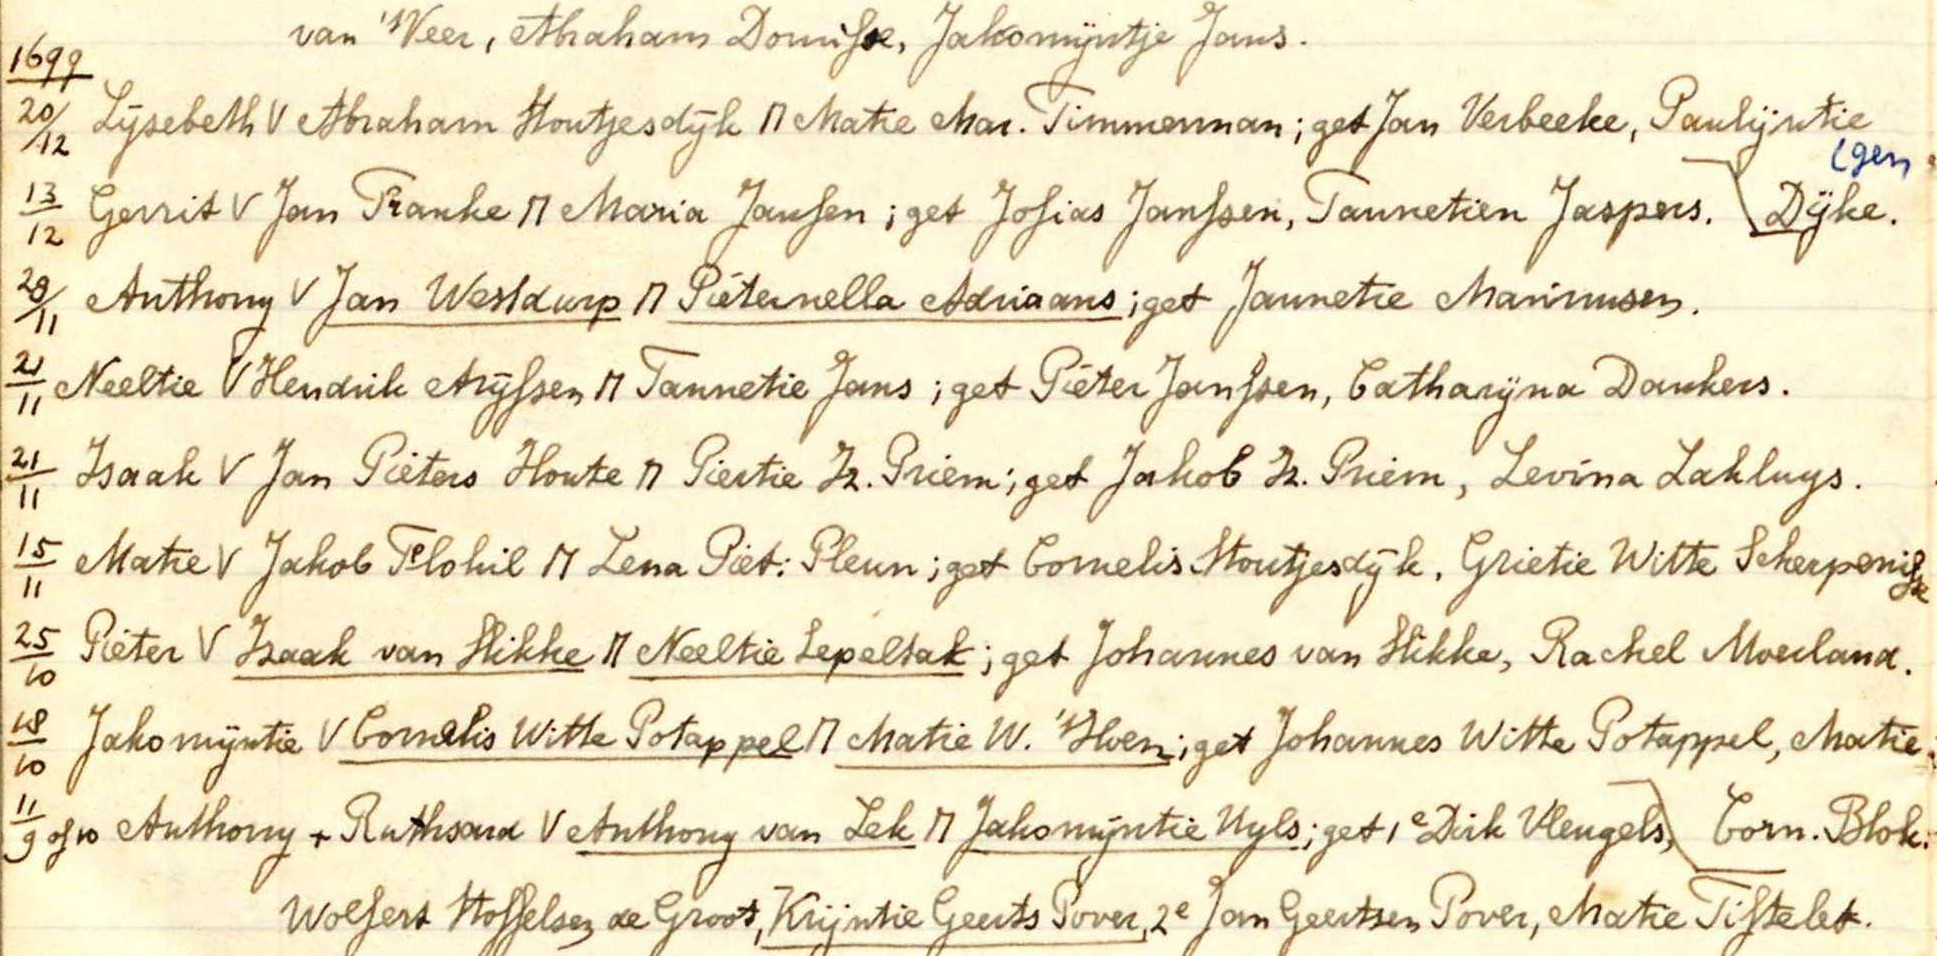 van 'sVeer, Abraham Domisse, Jakomijntje Jans.
1699
20/12 Lijsebeth V Abraham Houtjesdijk M Matie Mar. Timmerman; get Jan Verbeeke, Paulijntie
(gen
13/12 Gerrit V Jan Franke M Maria Jansen; get Josias Janssen, Tannetien Jaspers. Dijke.
28/11 Anthony V Jan Westdurp M Pieternella Adriaans; get Jannetie Marinusen.
21/11 Neeltie V Hendrik Arijssen M Tannetie Jans; get Pieter Janssen, Catharijna Dankers.
21/11 Isaak V Jan Pieters Houte M Piertie Iz. Priem; get Jakob Iz. Priem, Levina Lakluys.
15/11 Matie V Jakob Flohil M Lena Piet: Pleun; get Cornelis Stoutjesdijk, Grietie Witte Scherpenisse
25/10 Pieter V Izaak van Slikke M Neeltie Lepeltak; get Johannes van Slikke, Rachel Moerland.
18/10 Jakomijntie V Cornelis Witte Potappel M Matie W. 'tHoen; get Johannes Witte Potappel, Matie
11/9 of 10 Anthony + Ruthsard V Anthony van Lek M Jakomijntie Uyls; get 1e Dirk Vleugels, Corn. Blok.
Wolfert Stoffelsen de Groot, Krijntie Geerts Pover, 2e Jan Geertsen Pover, Matie Tistelet.